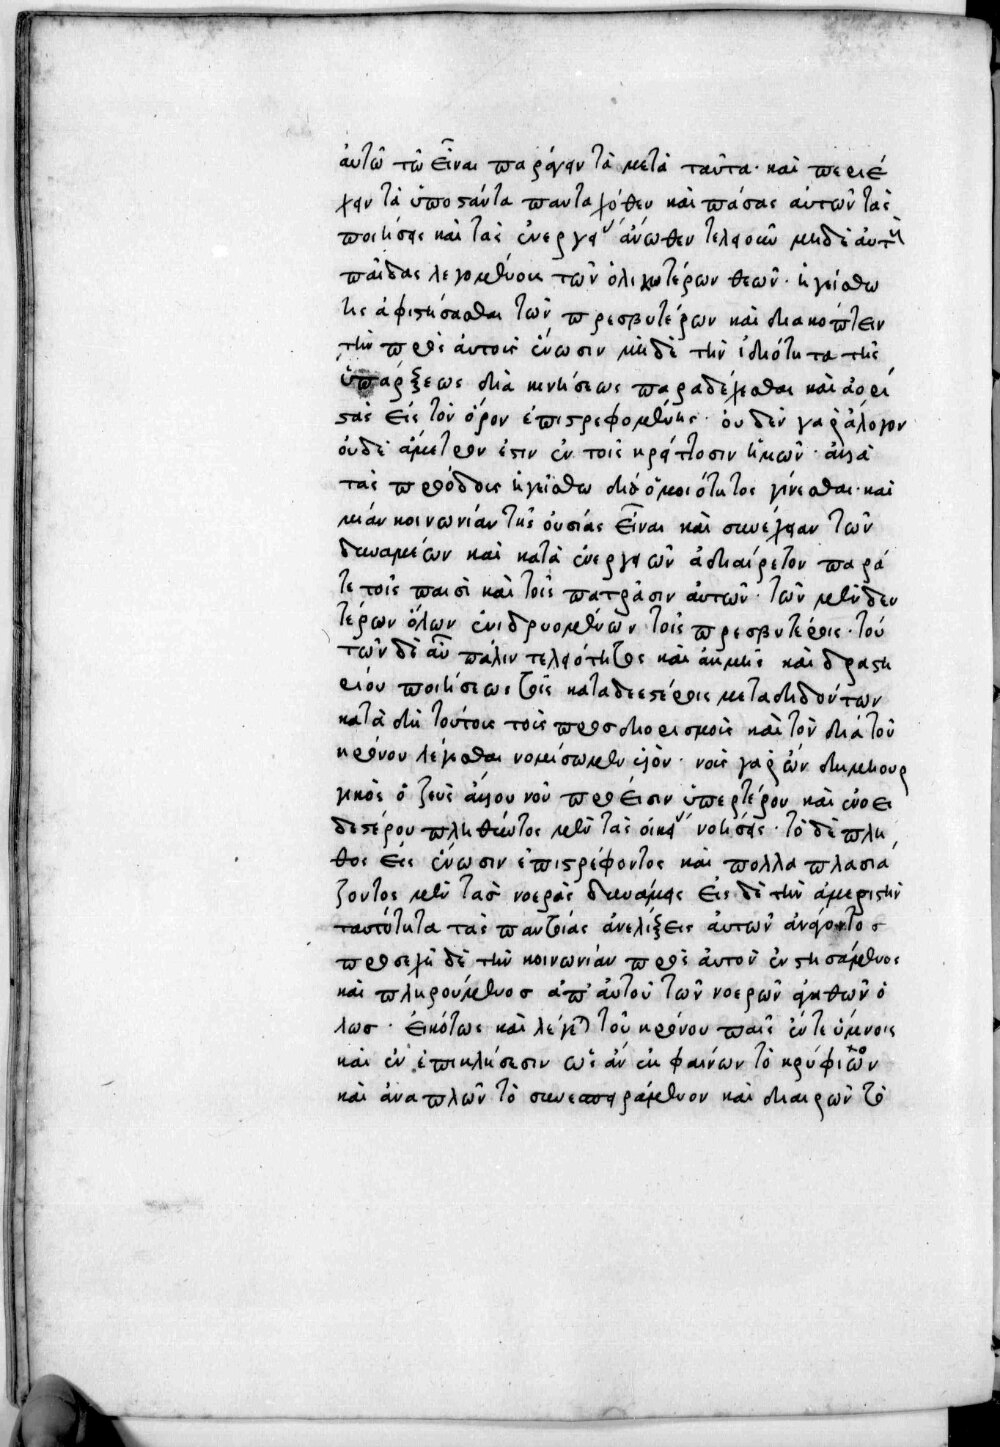 αὐτῶ τῶ εἶναι παράγειν τὰ μετὰ ταῦτα· καὶ περιέ
χειν τὰ ὑποστάντα πανταχόθεν καὶ πάσας αὐτῶν τὰς
ποιήσεις καὶ τὰς ἐνεργείας ἄνωθεν τελειοῦν μηδὲ αὖ τοὺς
παῖδας λεγομένους τῶν ὁλικωτέρων θεῶν· ἡγείσθω
τις ἀφίστασθαι τῶν πρεσβυτέρων καὶ διακόπτειν
τὴν πρὸς αὐτοὺς ἕνωσιν μηδὲ τὴν ἰδιότητα τῆς
ὑπάρξεως διὰ κινήσεως παραδέχεσθαι καὶ ἀορι
στίας εἰς τὸν ὅρον ἐπιστρεφομένης· οὐδὲν γὰρ ἄλογον
οὐδὲ ἄμετρον ἐστιν ἐν τοῖς κρείττοσιν ἡμῶν· ἀλλὰ
τὰς προόδους ἡγείσθω δι' ὁμοιότητος γίνεσθαι· καὶ
μίαν κοινωνίαν τῆς οὐσίας εἶναι καὶ συνέχειαν τῶν
δυναμέων καὶ κατὰ ἐνεργειῶν ἀδιαίρετον παρά
τε τοῖς παισὶ καὶ τοῖς πατράσιν αὐτῶν· τῶν μὲν δευ
τέρων ὅλων ἐνιδρυομένων τοῖς πρεσβυτέροις· τού
των δὲ αὖ πάλιν τελειότητος καὶ ἀκμῆς καὶ δραστη
ρίου ποιήσεως τοῖς καταδεεστέροις μεταδιδόντων
κατὰ δὴ τούτους τοὺς προσδιορισμοὺς καὶ τὸν δία τοῦ
κρόνου λέγεσθαι νομίσωμεν υἱόν· νοῦς γὰρ ὢν δημιουρ
γικὸς ὁ ζεὺς ἄλλου νοῦ πρόεισιν ὑπερτέρου καὶ ἑνοει
δεστέρου πληθύοντος μὲν τὰς οἰκείας νοήσεις· τὸ δὲ πλῆ
θος εἰς ἕνωσιν ἐπιστρέφοντος καὶ πολλαπλασιά
ζοντος μὲν τὰς νοερὰς δυνάμεις εἰς δὲ τὴν ἀμέριστὴν
ταυτότητα τὰς παντοίας ἀνελίξεις αὐτῶν ἀνάγοντος
προσεχῆ δὲ τὴν κοινωνίαν πρὸς αὐτὸν ἐνστησάμενος
καὶ πληρούμενος ἀπ' αὐτοῦ τῶν νοερῶν ἀγαθῶν ὅ
λως· εἰκότως καὶ λέγεται τοῦ κρόνου παῖς ἔν τε ὕμνοις
καὶ ἐν ἐπικλήσεσιν ὡς ἂν ἐκφαίνων τὸ κρύφιον
καὶ ἀναπλῶν τὸ συνεσπειραμένον καὶ διαιρῶν τὸ